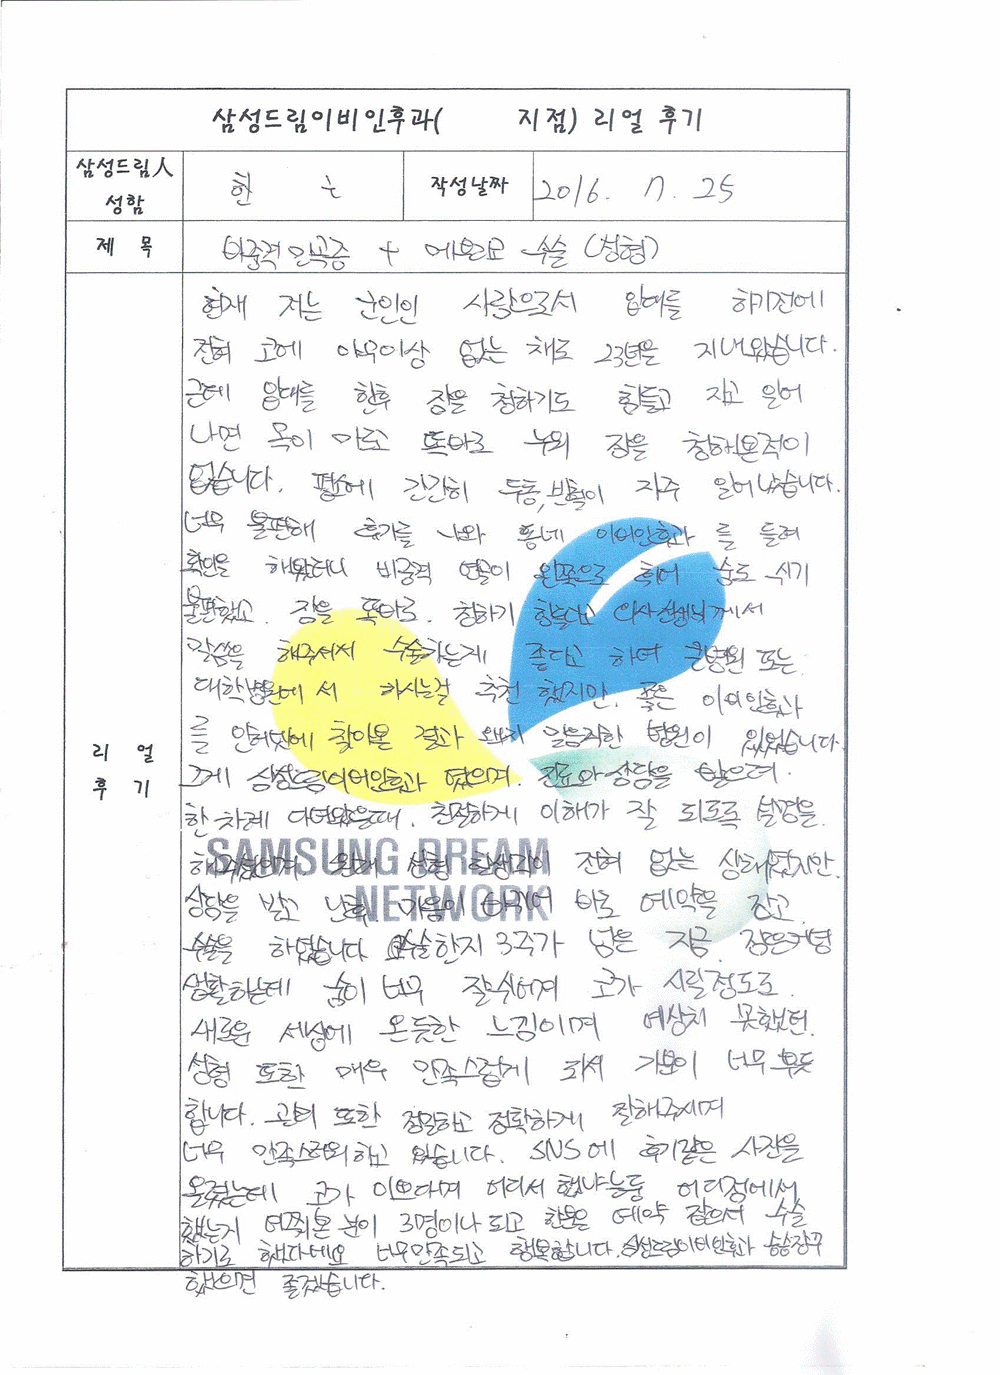 삼성드림이비인후과( 지점) 리얼 후기
삼성드림人 성함 한 작성날짜 2016. 7. 25
제 목 비중격만곡증 + 매부리코 수술 (성형)
리 얼 후 기
현재 저는 군인인 사람으로서 입대를 하기전에
전혀 코에 아무이상 없는 채로 23년을 지내왔습니다.
근데 입대를 한후 잠을 청하기도 힘들고 자고 일어
나면 목이 마르고 똑바로 누워 잠을 청해본적이
없습니다. 평소에 간간히 두통, 자주 일어났습니다.
너무 불편해 휴가를 나와 동네 이비인후과를 들려
확인을 해봤더니 비중격 연골이 왼쪽으로 휘어 숨도 쉬기
불편했고. 잠을 똑바로. 청하기 힘들다고 의사선생님께서
말씀을 해주셔서 수술하는게 좋다고 하여 큰병원 또는
대학병원에서 하시는걸 추천 했지만. 좋은 이비인후과
를 찾아온 결과 병원이 있었습니다.
그게 삼성드림이비인후과 였으며. 진료와 상담을 받으려.
한차례 다녀왔을때. 친절하게 이해가 잘 되도록 설명을.
해주셨으며 원래 성형 전혀 없는 상태였지만.
상담을 받고 난후, 마음이 바뀌어 바로 예약을 잡고
수술을 하였습니다 수술한지 3주가 넘은 지금.
생활하는데 숨이 너무 잘쉬어져 코가 시릴정도로.
새로운 세상에 온듯한 느낌이며 예상치 못했던.
성형 또한 매우 만족스럽게 되서 기분이 너무 뿌듯
합니다. 관리 또한 정밀하고 정확하게 잘해주시며
너무 만족스러워하고 있습니다. SNS에 후기같은 사진을
올렸는데 코가 이쁘다며 어디서 했냐는둥 어디점에서
했는지 여쭤본 분이 3명이나 되고 한분은 예약 잡으셔 수술
하기로 했다네요 너무만족되고 행복합니다. 삼성드림이비인후과 승승장구
했으면 좋겠습니다.
SAMSUNG DREAM
NETWORK